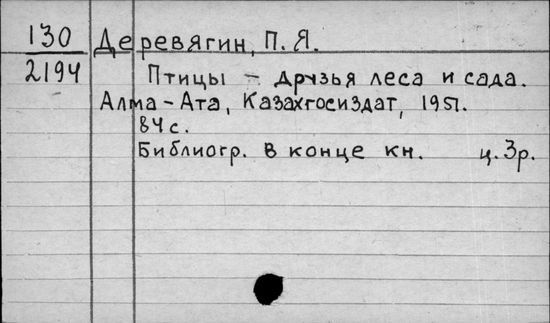 130 Деревягин, П. Я.
2194 Птицы – друзья леса и сада.
Алма-Ата, Казахгосиздат, 1951.
84 с.
Библиогр. в конце кн. ц. 3 р.